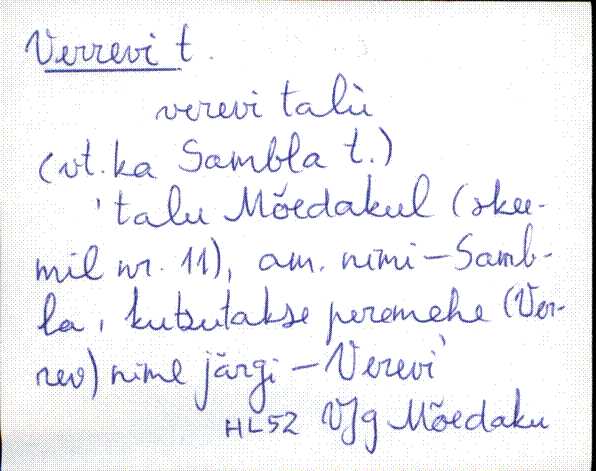 Verrevi t.
verevi talù
(vt. ka Sambla t.)
'talu Mõedakul (sku-
mil nr. 11), am. nimi - Samb-
la, kutsutakse peremehe (Ver-
rev) nime järgi - Verevi'
HL52 VJg Mõedaku